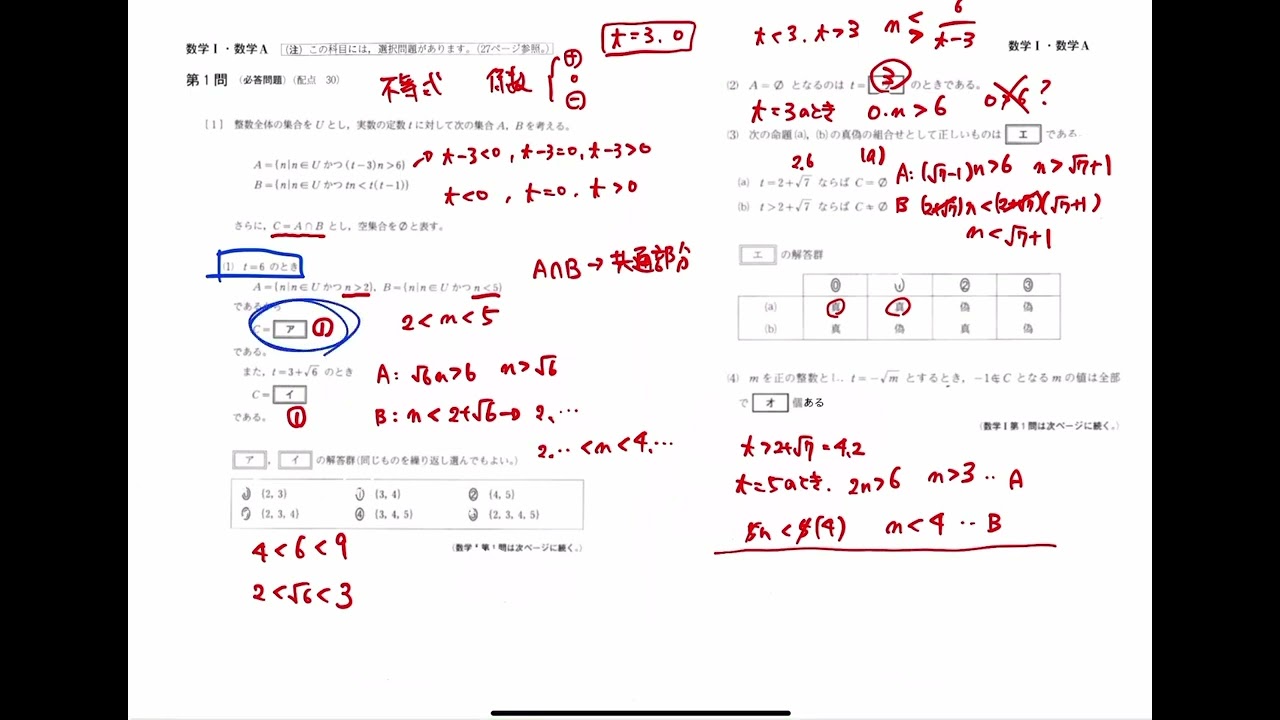 数学Ⅰ・数学A (注) この科目には，選択問題があります。(27ページ参照。)
t=3.0
第1問 (必答問題)(配点 30)
不等式 係数 + 0 −
〔1〕 整数全体の集合をUとし，実数の定数tに対して次の集合A，Bを考える。
A={n|n∈Uかつ(t−3)n>6}
t−3<0, t−3=0, t−3>0
B={n|n∈Uかつtn<t(t−1)}
t<0, t=0. t>0
さらに，C=A∩Bとし，空集合を∅と表す。
(1) t=6のとき
A∩B→共通部分
A={n|n∈Uかつn>2}，B={n|n∈Uかつn<5}
であるから
C= ア ①
2<n<5
である。
また，t=3+√6のとき
A: √6n>6 n>√6
C= イ
である。 ①
B: n<2+√6→2,…
2.‥<n<4.…
ア ， イ の解答群(同じものを繰り返し選んでもよい。)
⓪ {2, 3} ① {3, 4} ② {4, 5}
③ {2, 3, 4} ④ {3, 4, 5} ⑤ {2, 3, 4, 5}
(数学Ⅰ第1問は次ページに続く。)
4<6<9
2<√6<3
t<3. t>3 n<> 6/t−3
数学Ⅰ・数学A
(2) A=∅となるのはt= 3 のときである。
t=3のとき 0.n>6 0>6?
(3) 次の命題(a)，(b)の真偽の組合せとして正しいものは エ である
2.6 (a) A: (√7−1)n>6 n>√7+1
(a) t=2+√7ならばC=∅
(b) t>2+√7ならばC≠∅
B (2+√7)n<(2+√7)(√7+1)
n<√7+1
エ の解答群
⓪ ① ② ③
(a) 真 真 偽 偽
(b) 真 偽 真 偽
(4) mを正の整数とし，t=−√mとするとき，−1∈Cとなるmの値は全部
で オ 個ある
(数学Ⅰ第1問は次ページに続く。)
t>2+√7=4.2
t=5のとき. 2n>6 n>3‥A
5n<5(4) n<4‥B